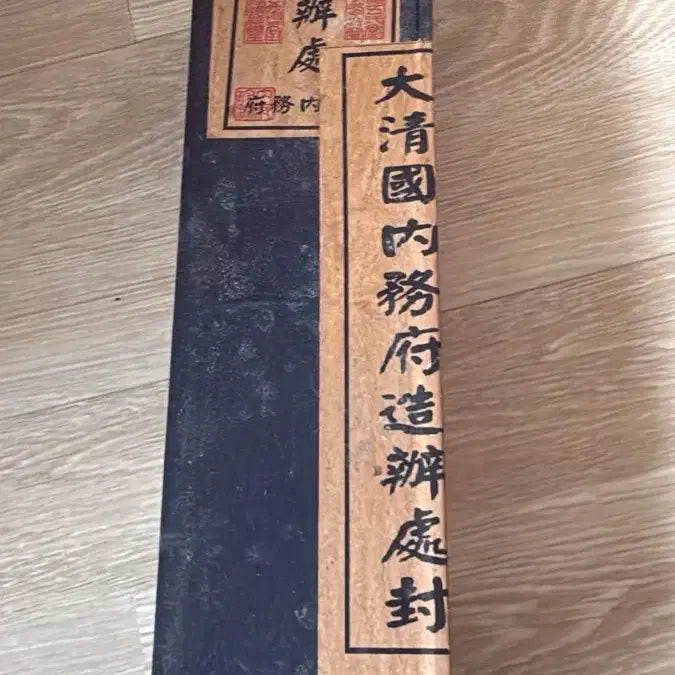 大清國内務府造辦處封
辦處
府務内